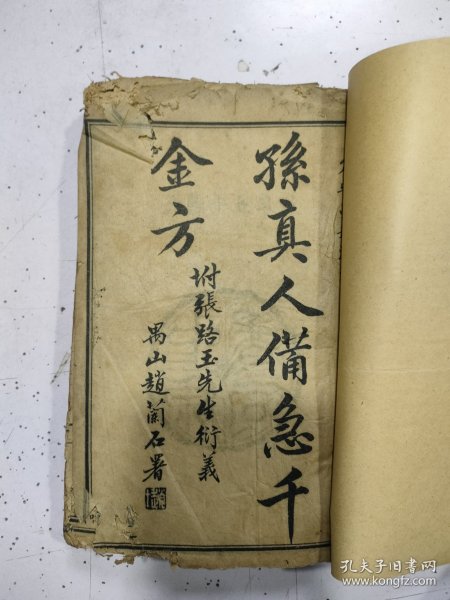 孫真人備急千
金方
坿張路玉先生衍義
禺山趙蘭石署
孔夫子旧书网
www.kongfz.com